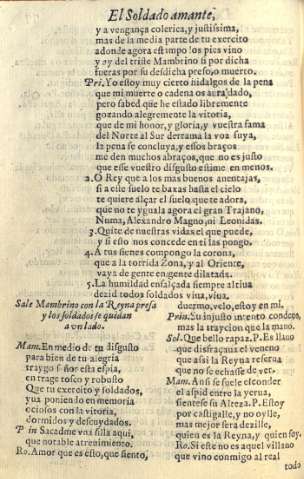 El Soldado amante,
y a vengança colerica, y justissima,
mas de la media parte de tu exercito
adonde agora estampo los pies vino
y ay del triste Mambrino si por dicha
fueras por su desdicha preso, o muerto.
Pri. Yo estoy muy cierto hidalgos de la pena
que mi muerte o cadena os aura dado,
pero sabed que he estado libremente
gozando alegremente la vitoria,
que de mi honor, y gloria, y vuestra fama
del Norte al Sur derrama la voz suya,
la pena se concluya, y essos braços
me den muchos abraços, que no es justo
que esse vuestro disgusto estime en menos.
2. O Rey que a los mas buenos auentajas,
si a este suelo te baxas hasta el cielo
te quiere alçar el suelo, que te adora,
que no te yguala agora el gran Trajano,
Numa, Alexandro Magno, ni Leonidas.
3. Quite de nuestras vidas el que puede,
y si esto nos concede en ti las pongo.
4. A tus sienes compongo la corona,
que a la torrida Zona, y al Oriente,
vaya de gente en gente dilatada.
5. La humildad ensalçada siempre al tiua
dezid todos soldados viua, viua.
Sale Mambrino con la Reyna presa
y los soldados se quitan
a vn lado.
Mam. En medio de tu disgusto
para bien de tu alegria
traygo señor esta espia,
en trage tosco y robusto
Que tu exercito y soldados,
yua poniendo en memoria
ociosos con la vitoria,
dormidos y descuydados.
Prin. Sacadme vna silla aqui,
que notable atreuimiento.
Ro. Amor que es esto, que siento,
duermo, velo, estoy en mi.
Prin. Su injusto intento condeno,
mas la traycion que la mano.
Sol. Que bello rapaz. P. En llano
que disfraçaua el veneno
que assi la Reyna le fuera
que no se echasse de ver.
Mam. Ansi se suele esconder
el aspid entre la yerua,
sientese su Alteza. P. Estoy
por castigalle, y no oylle,
mas mejor sera dezille,
quien es la Reyna, y quien soy.
Ro. Si este no es aquel villano
que vino conmigo al real
todo